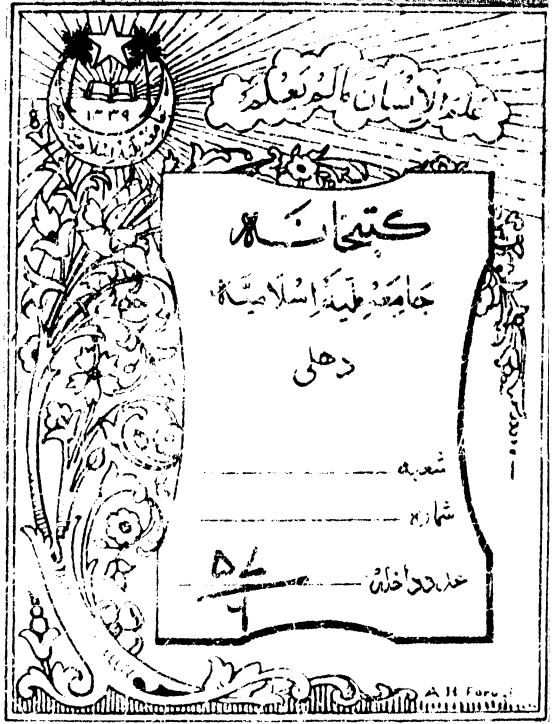 علم الإنسان مالم يعلم
١٣٣٩
کتبخانہ
جامعہ ملیہ اسلامیہ
دهلی
شعبہ
شمارہ
عدد داخلہ
A H Faruqi